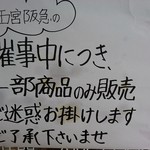 王宮阪急の
催事中につき、
一部商品のみ販売
ご迷惑お掛けします
ご了承下さいませ